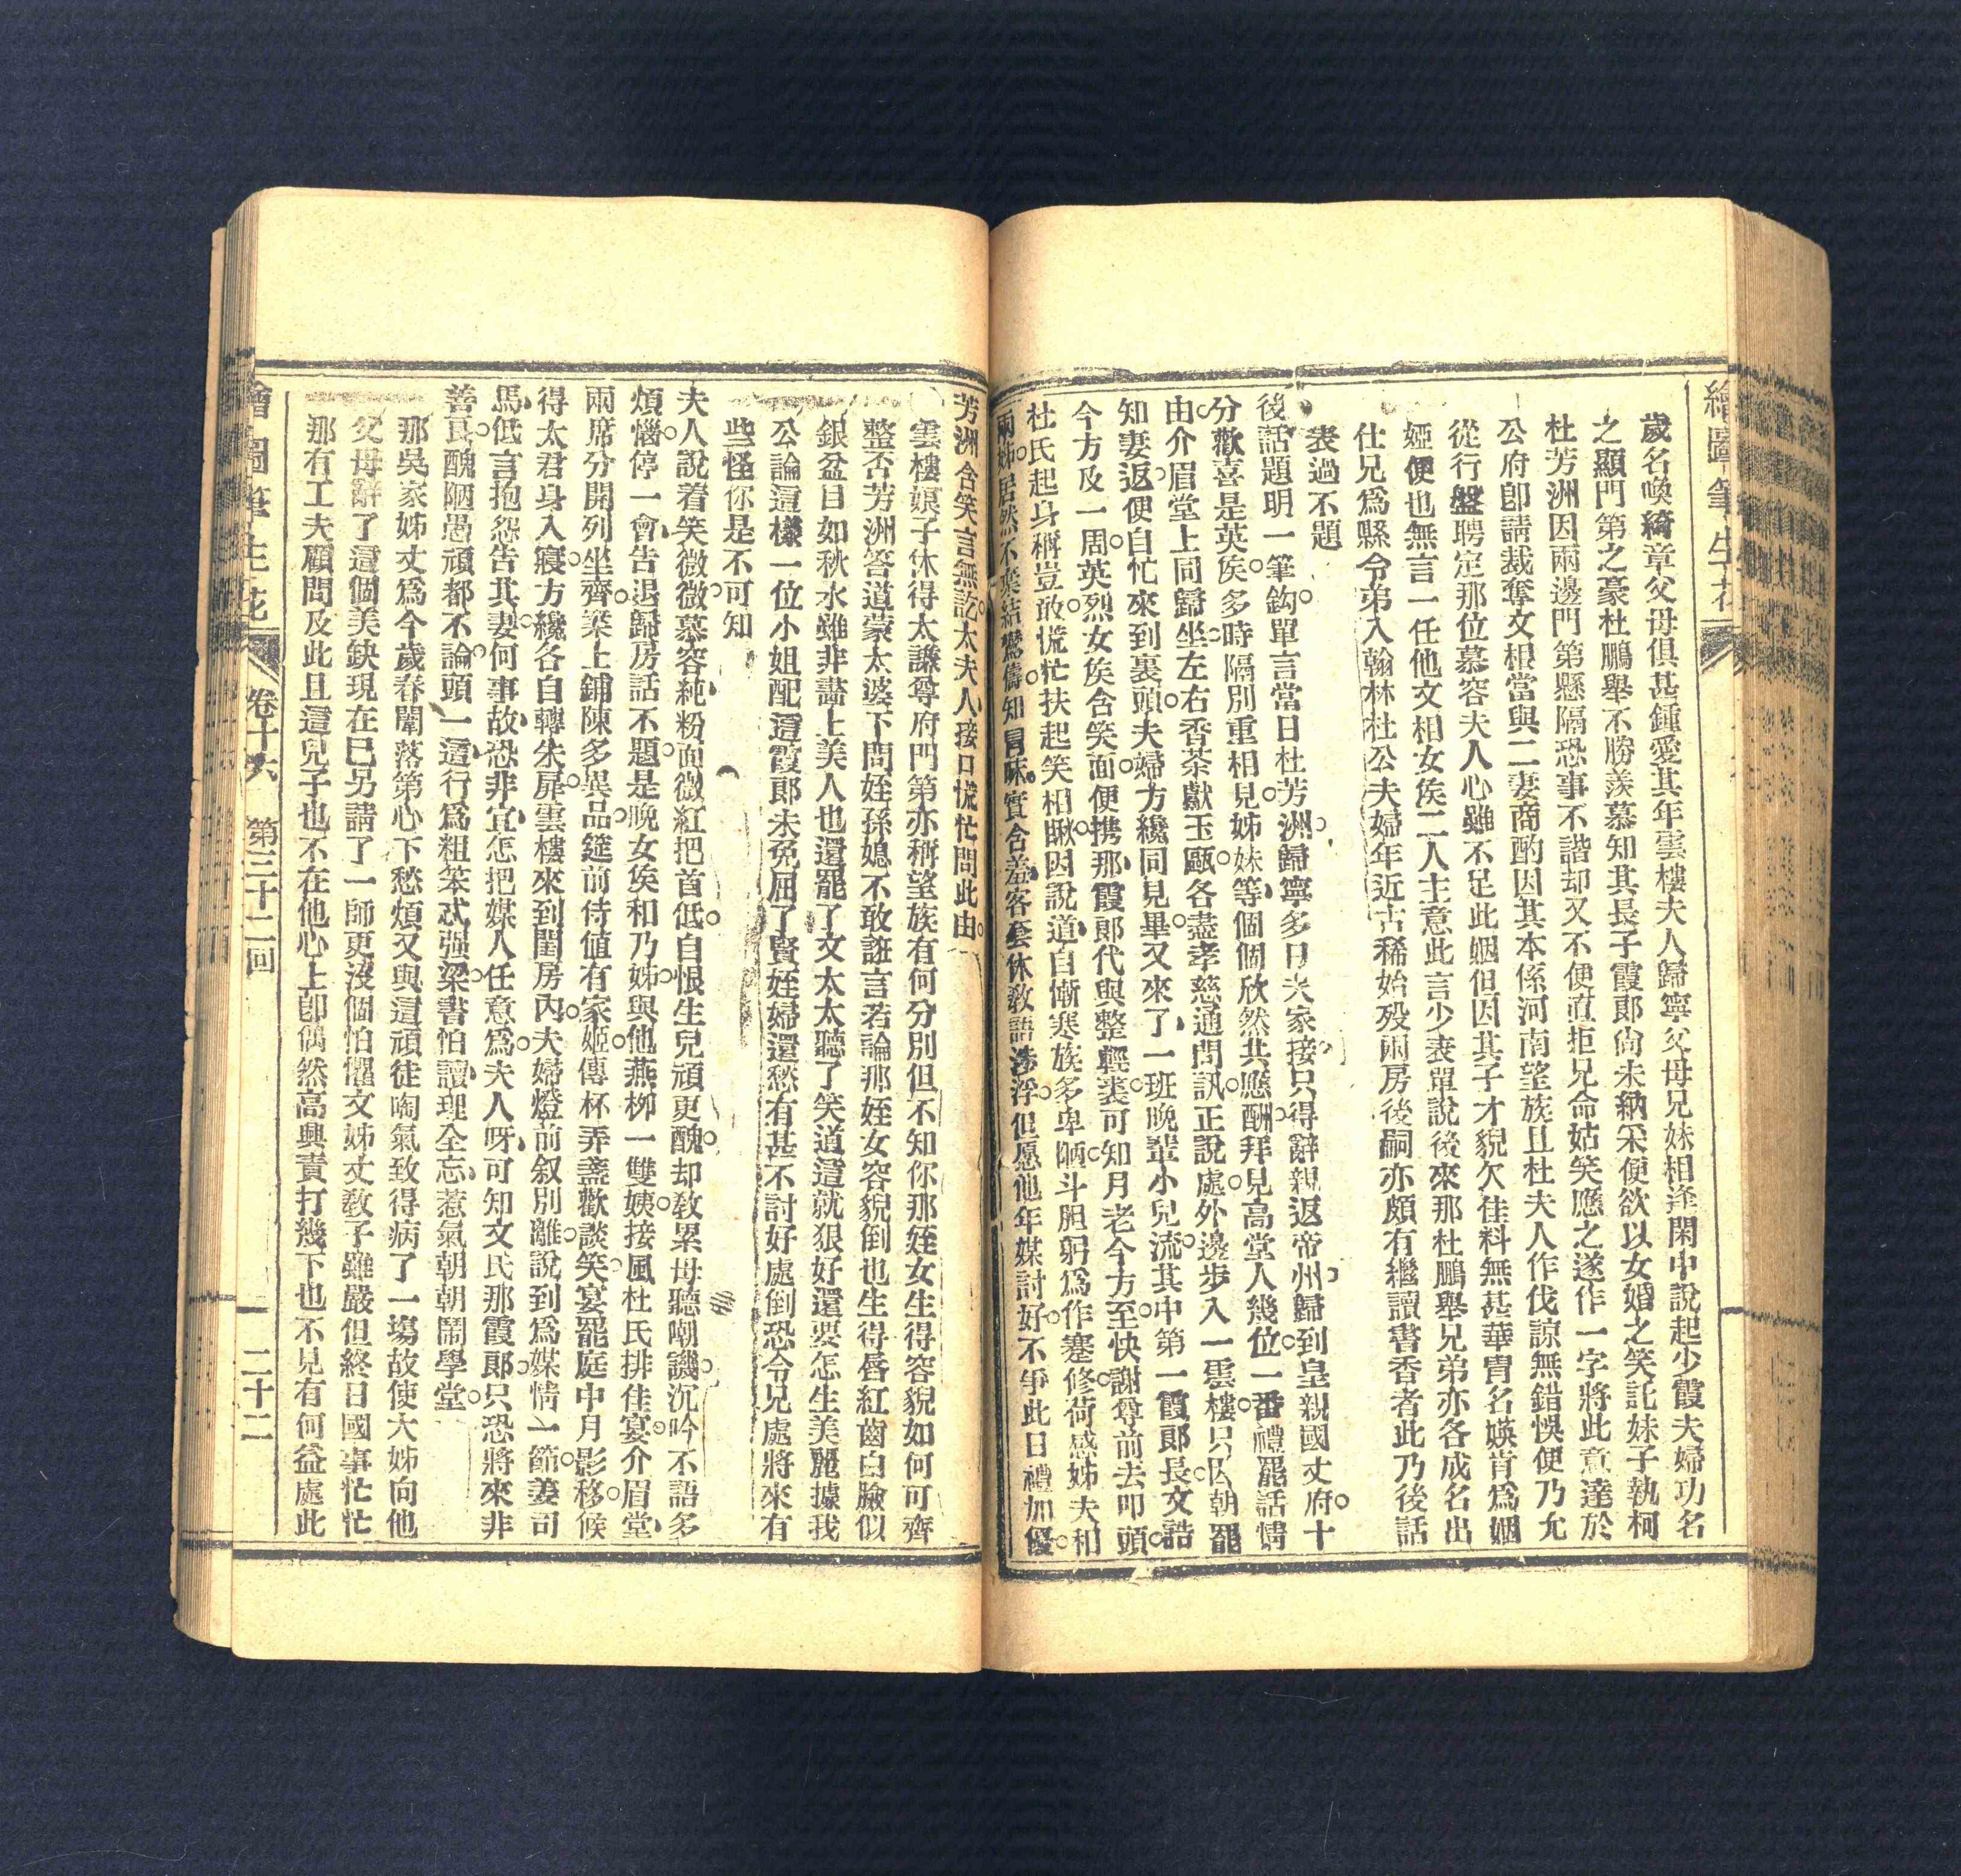 繪圖筆生花
歲名喚綺章父母俱甚鍾愛其年雲樓夫人歸寧父母兄妹相逢閑中說起少霞夫婦功名
之顯門第之豪杜鵬舉不勝羨慕知其長子霞郎尙未納采便欲以女婚之笑託妹子執柯
杜芳洲因兩邊門第懸隔恐事不諧却又不便直拒兄命姑笑應之遂作一字將此意達於
公府卽請裁奪文相當與二妻商酌因其本係河南望族且杜夫人作伐諒無錯悞便乃允
從行盤聘定那位慕容夫人心雖不足此姻但因其子才貌欠佳料無甚華胄名媖肯爲姻
婭便也無言一任他文相女侯二人主意此言少表單說後來那杜鵬舉兄弟亦各成名出
仕兄爲縣令弟入翰林杜公夫婦年近古稀始歿兩房後嗣亦頗有繼讀書香者此乃後話
表過不題
後話題明一筆鈎。單言當日杜芳洲。歸寧多日夫家接。只得辭親返帝州。歸到皇親國丈府。十
分歡喜是英侯。多時隔別重相見。姊妹等個個欣然共應酬。拜見高堂人幾位。一番禮罷話情
由。介眉堂上同歸坐。左右香茶獻玉甌。各盡孝慈通問訊。正說處。外邊步入一雲樓。只因朝罷
知妻返。便自忙來到裏頭。夫婦方纔同見畢。又來了、一班晚輩小兒流。其中第一霞郎長。文誥
今方及一周。英烈女侯含笑面。便携那、霞郎代與整輕裘。可知月老今方至。快謝尊前去叩頭。
杜氏起身稱豈敢。慌忙扶起笑相瞅。因說道、自慚寒族多卑陋。斗胆躬爲作蹇修。荷感姊夫和
兩姊。居然不棄結鸞儔。知冒昧。實含羞。客套休敎語涉浮。但愿他年媒討好。不爭此日禮加優。
芳洲含笑言無訖。太夫人、接口慌忙問此由。
雲樓娘子休得太謙尊府門第亦稱望族有何分別但不知你那姪女生得容貌如何可齊
整否芳洲答道蒙太婆下問姪孫媳不敢誑言若論那姪女容貌倒也生得唇紅齒白臉似
銀盆目如秋水雖非畵上美人也還罷了文太太聽了笑道這就狠好還要怎生美麗據我
公論這樣一位小姐配這霞郎未免屈了賢姪婦還愁有甚不討好處倒恐令兄處將來有
些怪你是不可知
夫人說着笑微微。慕容純、粉面微紅把首低。自恨生兒頑更醜。却敎累母聽嘲譏。沉吟不語多
煩惱。停一會、告退歸房話不題。是晚女侯和乃姊。與他燕柳一雙姨。接風杜氏排佳宴。介眉堂、
兩席分開列坐齊。桌上鋪陳多異品。筵前侍値有家姬。傳杯弄盞歡談笑。宴罷庭中月影移。候
得太君身入寢。方纔各自轉朱扉。雲樓來到閨房內。夫婦燈前叙別離。說到爲媒情一節。姜司
馬、低言抱怨告其妻。何事故、恐非宜。怎把媒人任意爲。夫人呀、可知文氏那霞郎。只恐將來非
善良。醜陋愚頑都不論。頭一這、行爲粗笨忒强梁。書怕讀、理全忘。惹氣朝朝鬧學堂。
那吳家姊丈爲今歲春闈落第心下愁煩又與這頑徒啕氣致得病了一塲故使大姊向他
父母辭了這個美缺現在已另請了一師更沒個怕懼文姊丈敎子雖嚴但終日國事忙忙
那有工夫顧問及此且這兒子也不在他心上卽偶然高興責打幾下也不見有何益處此
繪圖筆生花
卷十六　第三十二回
二十二